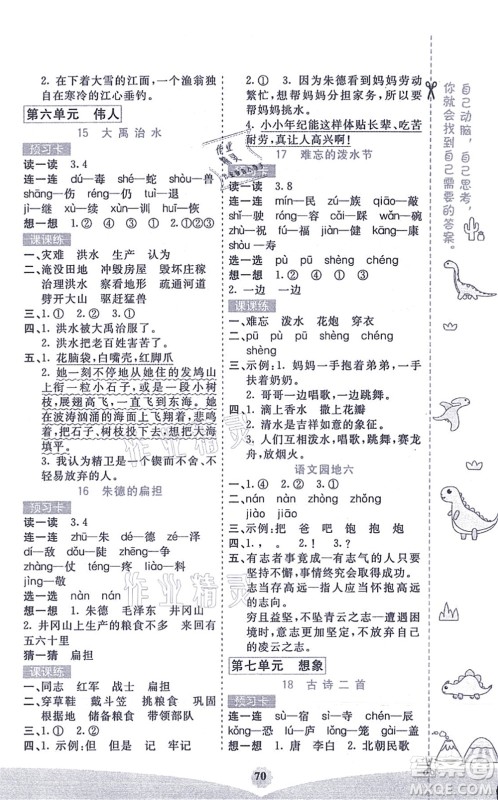 2. 在下着大雪的江面，一个渔翁独
自在寒冷的江心垂钓。
第六单元 伟人
15 大禹治水
预习卡
读一读 3.4
连一连 dú—毒 shé—蛇 shòu—兽
shāng—伤 réng—仍 duò—舵
jì—继 xù—续
想一想 1.①③ ② 2.①②③
课课练
一、灾难 洪水 生产 认为
二、淹没田地 冲毁房屋 毁坏庄稼
治理洪水 察看地形 疏通河道
劈开大山 驱赶猛兽
三、1.① 2.④
四、1. 洪水被大禹治服了。
2. 洪水使老百姓无家可归。
五、1. 花脑袋，白嘴壳，红爪子。
2. 她一刻不停地从她住的发鸠山上
衔一粒小石子，或是一段小树
枝，展翅高飞，一直飞到东海。她
在波涛汹涌的海面上飞翔，悲鸣
着，把石子、树枝投下去。
3. 我认为精卫是一个锲而不舍、不
轻易放弃的人。
16 朱德的扁担
预习卡
读一读 3.4
连一连 zhū—朱 dé—德 zhèng—正
zhàn—战 shì—士 zhé—泽
zhēng—争 dān—担
jìng—敬
选一选 nàn nán
想一想 1. 朱德 毛泽东 井冈山
2. 井冈山上生产的粮食不多 很远 有
五六十里
猜一猜 扁担
课课练
一、同志 红军 战士 扁担
二、穿草鞋 戴斗笠 挑扁担 巩固
根据地 储备粮食 带领部队
三、②
四、1. 示例：但是 记 牢记
2.① ① 3. 因为朱德看到妈妈劳动
繁忙，想分担妈妈的负担，所以
帮妈妈挑水。
4. 小小年纪能这样体贴长辈、吃苦
耐劳，真让人高兴啊！
17 难忘的泼水节
预习卡
读一读 3.8
连一连 zú—族 mín—民 qiāo—敲
shǐ—驶 wǎn—碗 róng—容 cǎi—踩
kāng—康 hán—寒
shòu—寿
选一选 pō pū shèng
想一想 1.② ④ ① ③
2. 一边 一边
课课练
一、难忘 泼水 花炮 穿衣
二、pū pū shèng chéng
shèng
三、示例：1. 妈妈一手抱着弟弟，一手
扶着栏杆。
2. 哥哥一边唱歌，一边跳舞。
四、1. 滴上香水 撒上花瓣
2. 敬酒，泼水，唱歌，跳舞，赛龙
舟，放烟火。
语文园地六
一、nán nàn zhòng zhǒng
jiào jiāo
三、示例：把 爸 吧 饱 炮 抱
四、， 。 ， 。
五、有志者事竟成—有志气的人只要
坚持不懈，事情终究会成功。
志当存高远—指一个人应当有远大的
志向。
穷且益坚，不坠青云之志—越是
困难，越要坚强，决不能抛弃自己的
凌云之志。
第七单元 想象
18 古诗二首
预习卡
连一连 sù—宿 sì—寺 chén—辰
kǒng—恐 jīng—惊
想一想 1. 唐 李白 2. 北朝民歌
自己动脑，自己思考，
你就会找到自己需要的答案。
70
作业精灵
答案圈
MXQE.COM